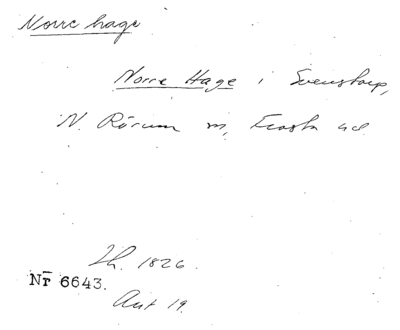 Norre hage
Norre Hage i Svenstorp,
N. Rörum sn, Frosta hd.
Lh. 1826.
Nr 6643.
Akt 19.